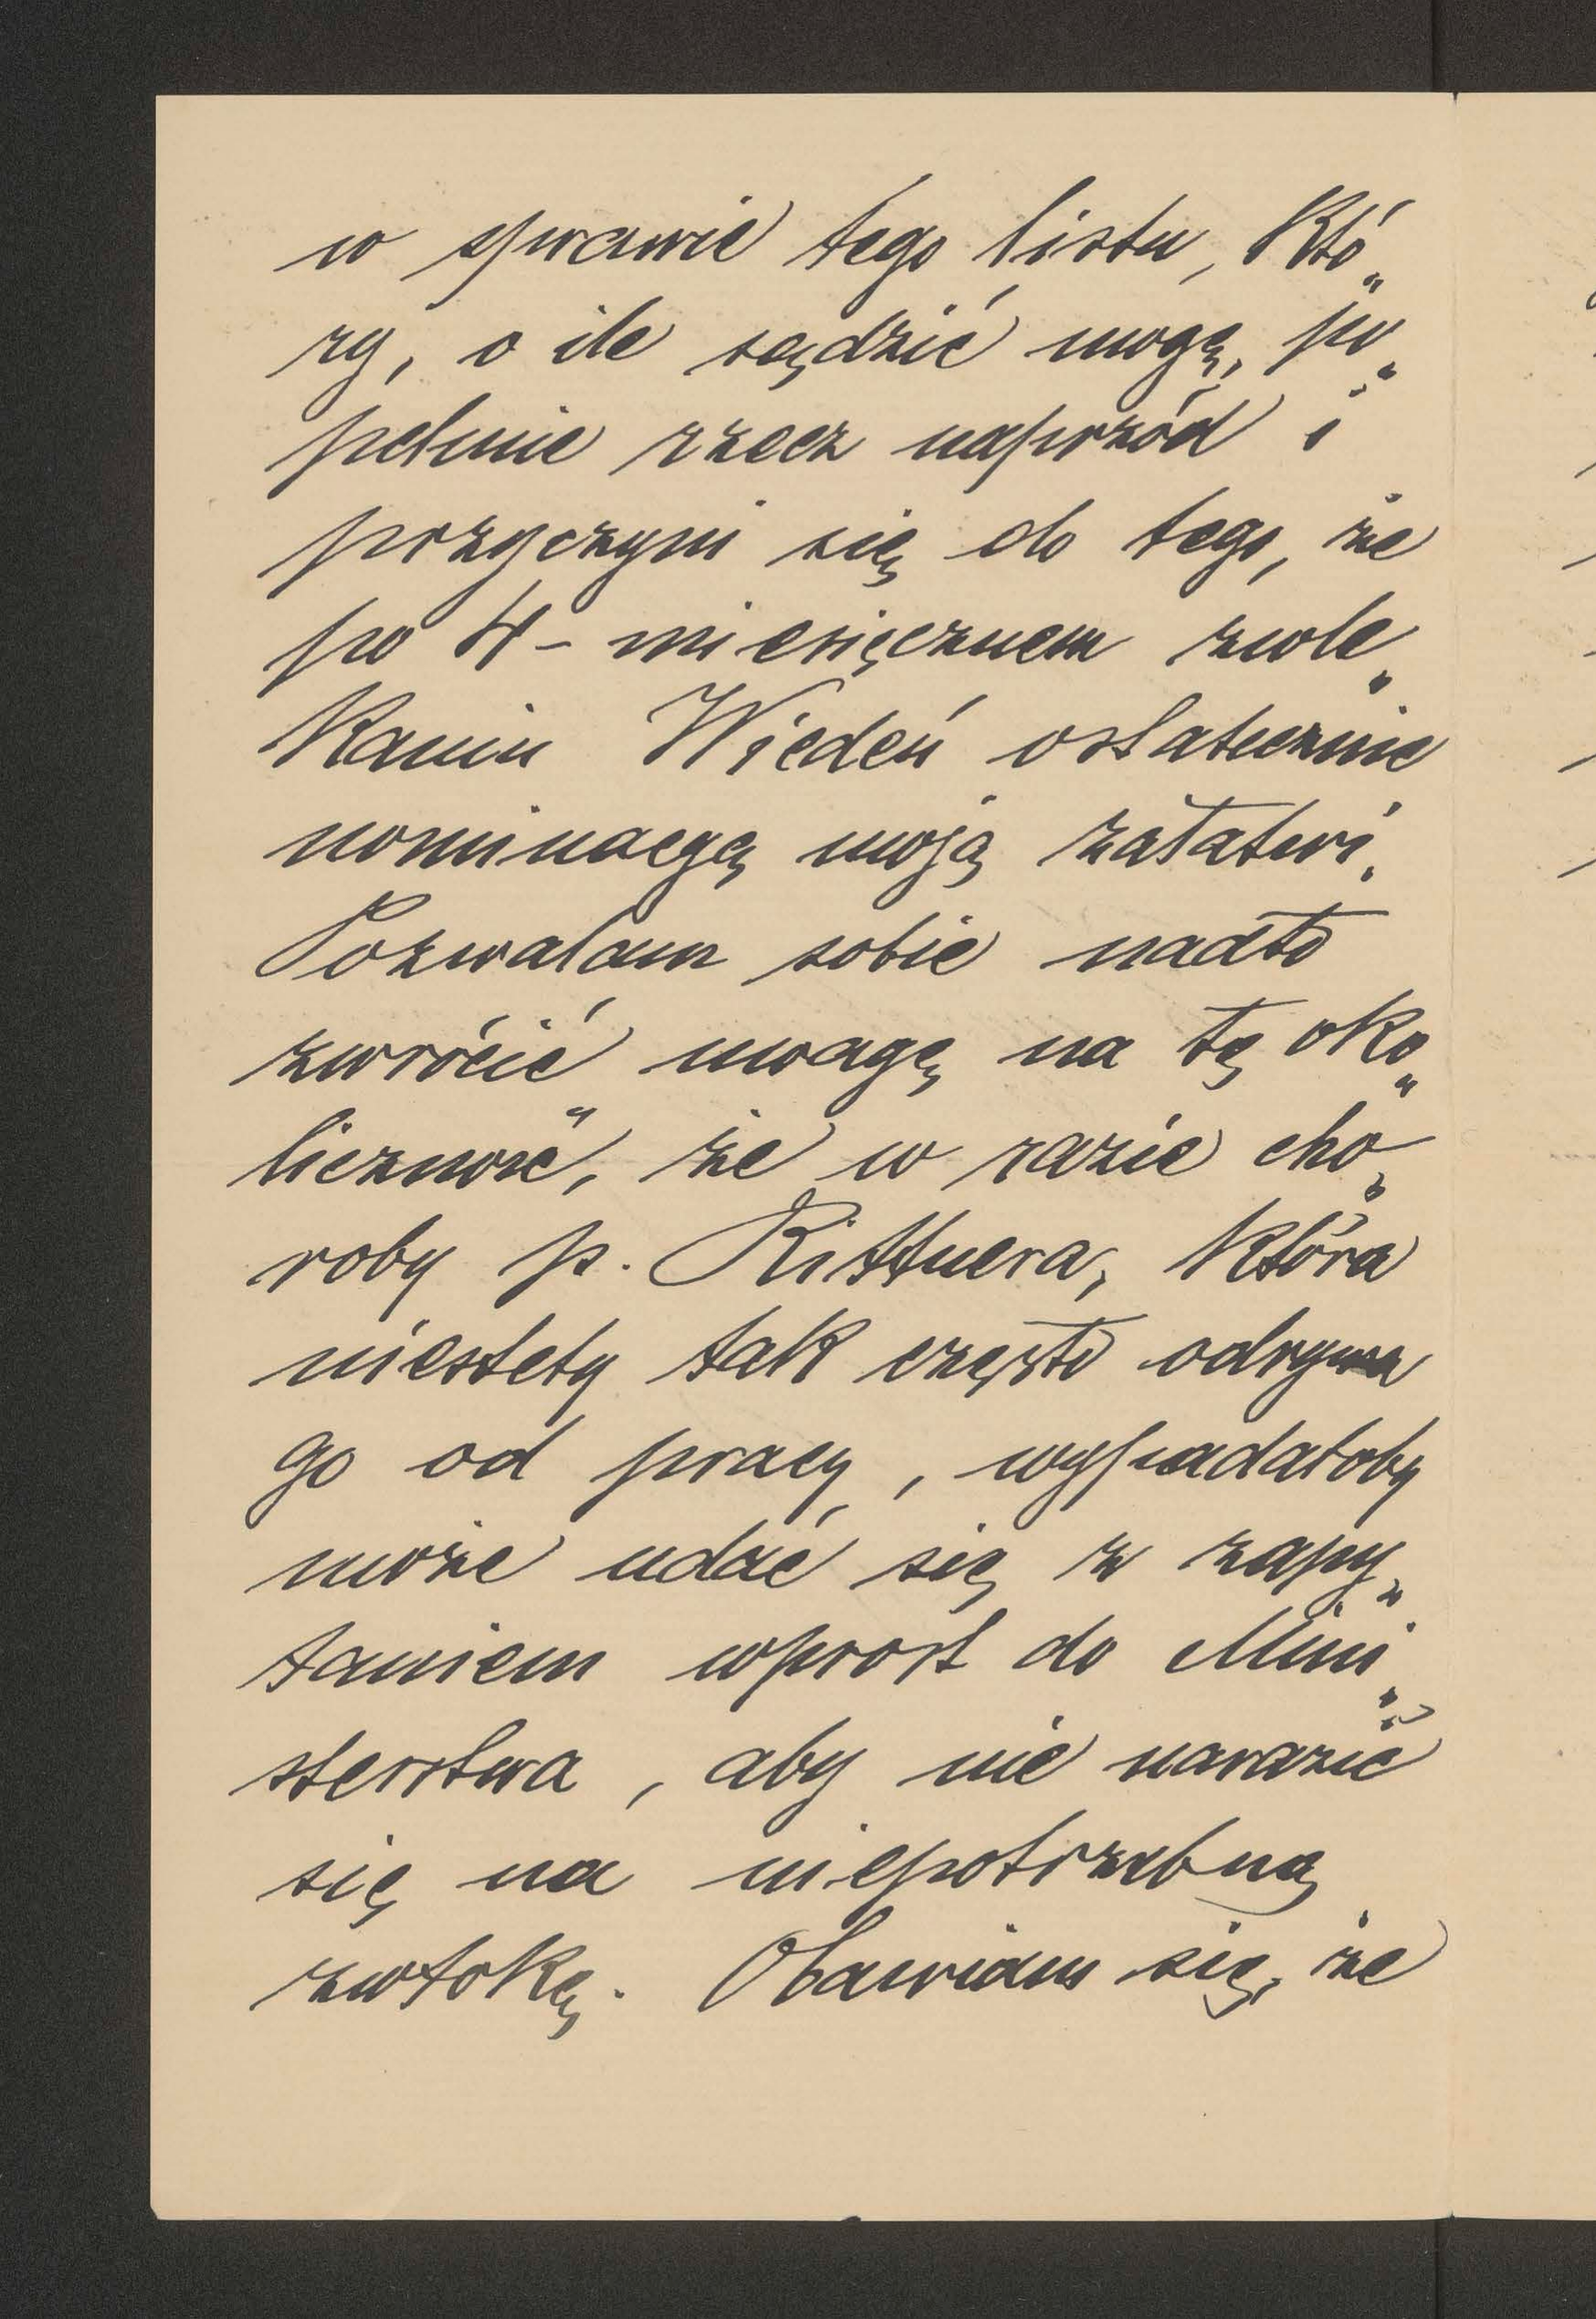 w sprawie tego listu, któ„
ry, o ile sądzić mogę, po„
pchnie rzecz naprzód i
przyczyni się do tego, że
po 4-miesięcznem zwle„
kaniu Wiedeń ostatecznie
nominacyę moją załatwi.
Pozwalam sobie nadto
zwrócić uwagę na tę oko„
liczność, że w razie cho„
roby p. Rittnera, która
niestety tak często odrywa
go od pracy, wypadałoby
może udać się z zapy„
taniem wprost do Mini„
sterstwa, aby nie narazić
się na niepotrzebną
zwłokę. Obawiam się, że